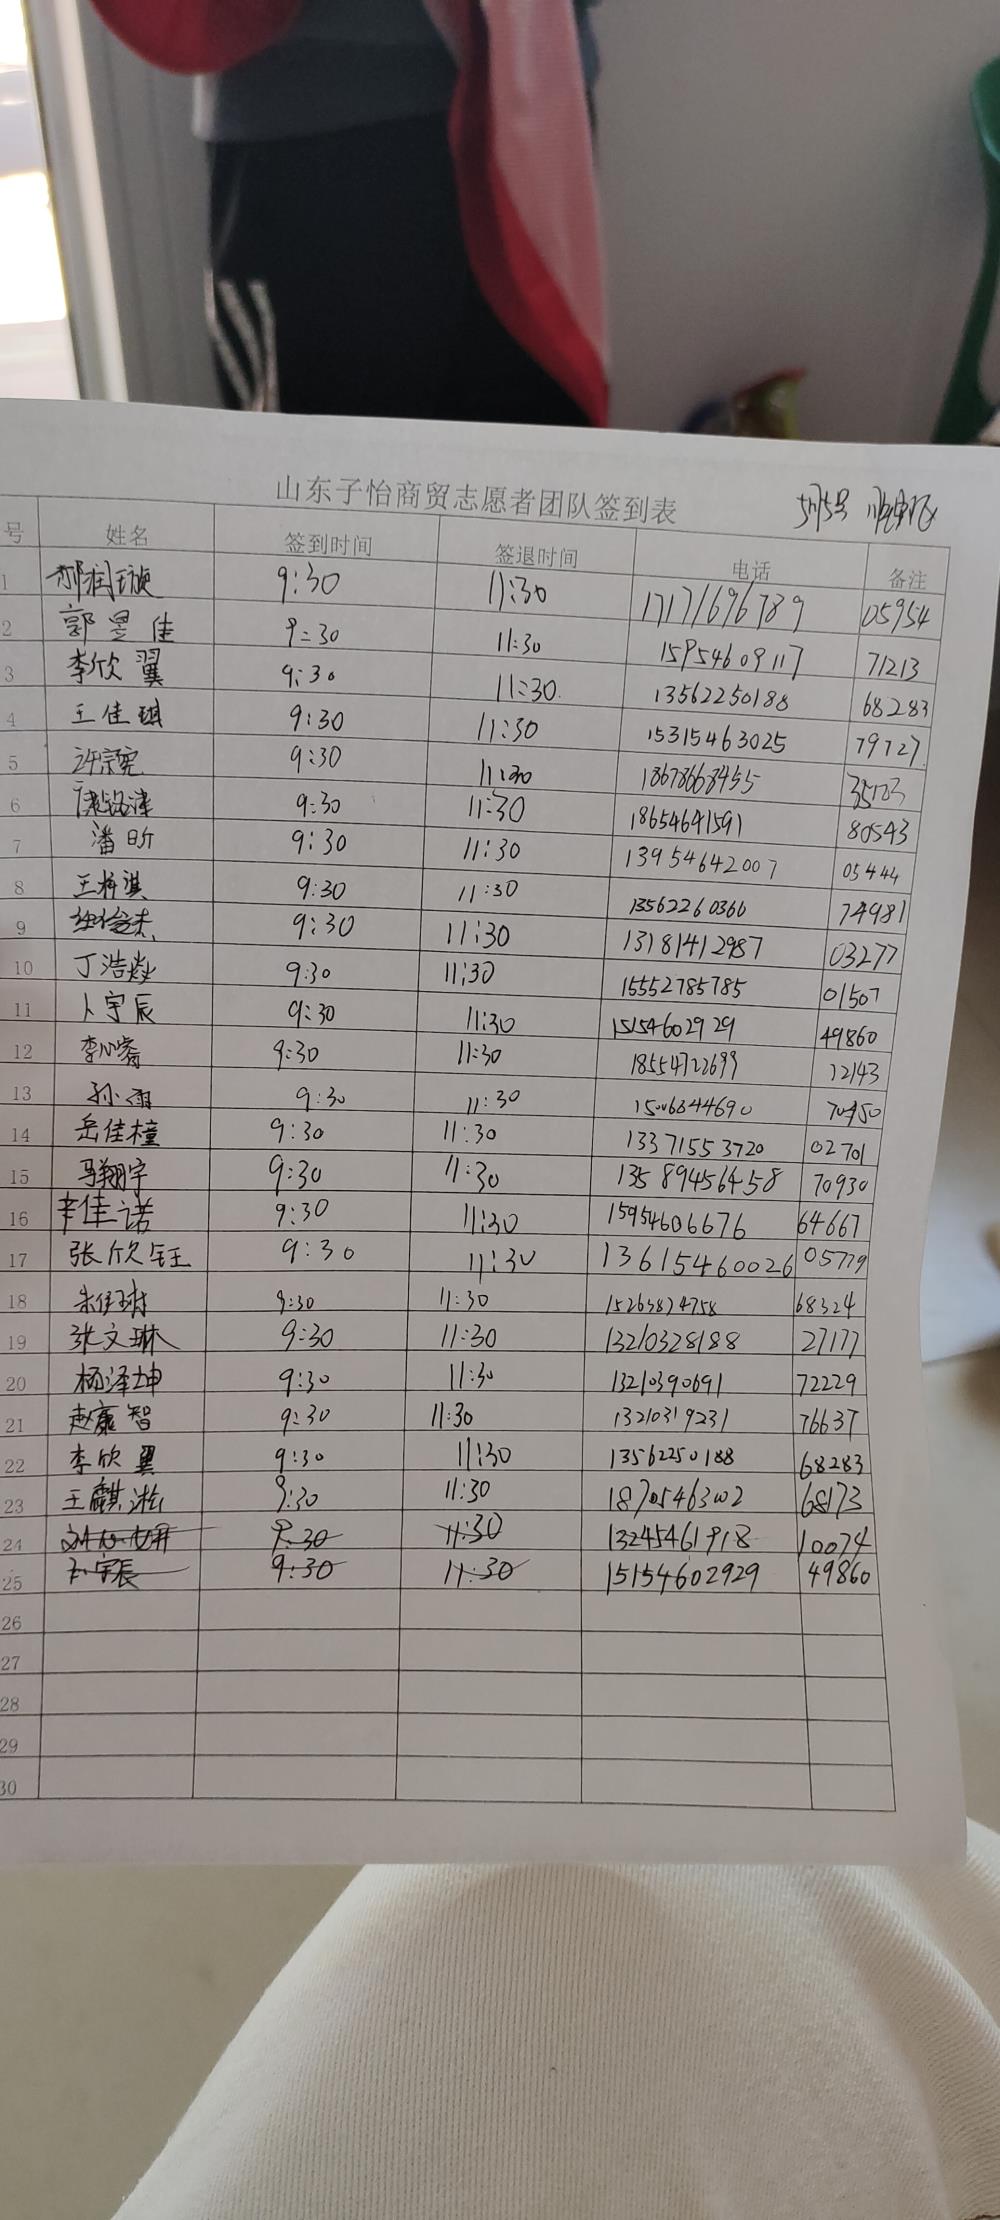 山东子怡商贸志愿者团队签到表 5月5号
号 姓名 签到时间 签退时间 电话 备注
1 郝润璇 9:30 11:30 17171696789 05954
2 郭昱佳 9:30 11:30 15954609117 71213
3 李欣翼 9:30 11:30. 13562250188 68283
4 王佳琪 9:30 11:30 15315463025 79727.
5 许宗宪 9:30 11:30 18678668455
6 9:30 11:30 18654641591 80543
7 潘昕 9:30 11:30 13954642007 05444
8 王梓淇 9:30 11:30 13562260366 74981
9 9:30 11:30 13181412987 03277
10 丁浩焱 9:30 11:30 15552785785 01507
11 卜宇辰 9:30 11:30 15154602929 49860
12 9:30 11:30 18554722699 12143
13 孙 9:30 11:30 15066844690 70950
14 岳佳橦 9:30 11:30 13371553720 02701
15 马翔宇 9:30 11:30 13589456458 70930
16 辛佳诺 9:30 11:30 15954606676 64667
17 张欣钰 9:30 11:30 13615460026 05779
18 9:30 11:30 15265874758 68324
19 张文琳 9:30 11:30 13210328188 27177
20 杨泽坤 9:30 11:30 13210390691 72229
21 赵康智 9:30 11:30 13210319231 76637
22 李欣翼 9:30 11:30 13562250188 68283
23 王麒淞 9:30 11:30 18705463002 68173
24 9:30 11:30 13245461918 10074
25 宇辰 9:30 11:30 15154602929 49860
26
27
28
29
30